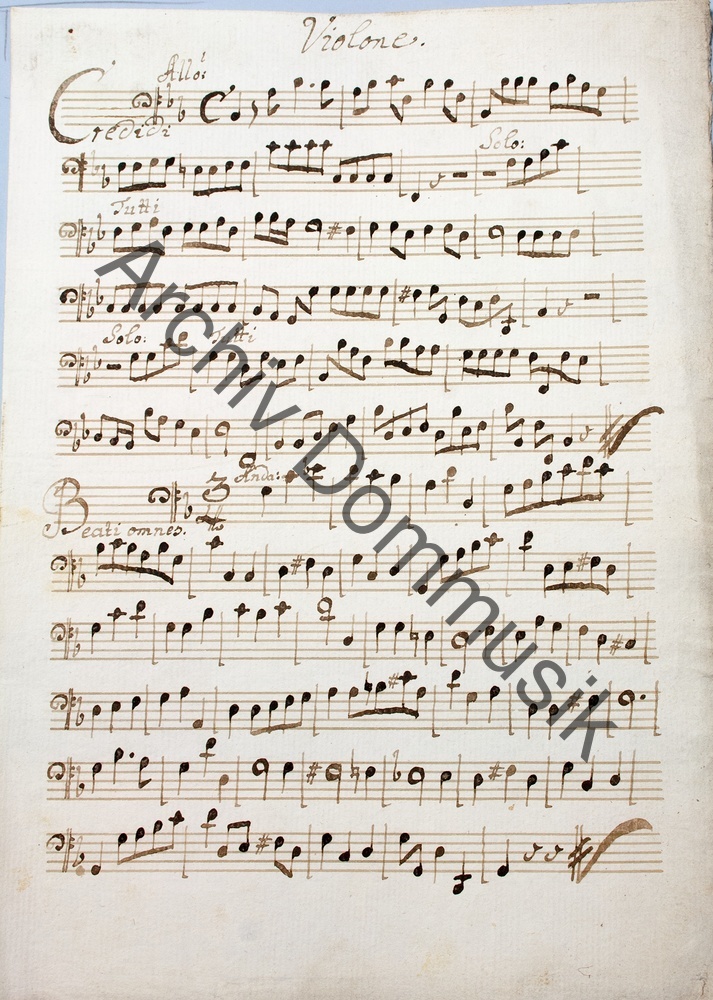 Violone.
Allo:
Credidi
Solo:
Tutti
Solo: Tutti
3 Anda:
Beati omnes.
Archiv Dommusik